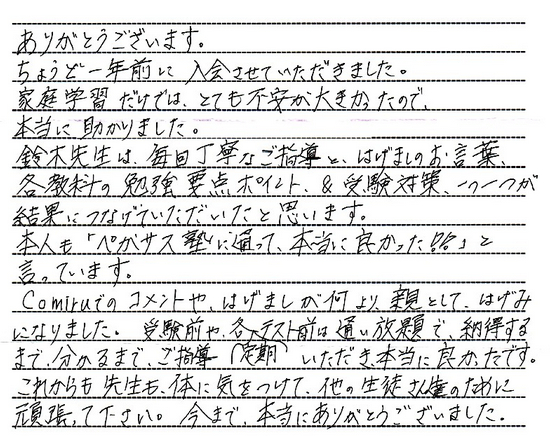 ありがとうございます。
ちょうど一年前に入会させていただきました。
家庭学習だけでは、とても不安が大きかったので、
本当に助かりました。
鈴木先生は、毎回丁寧なご指導と、はげましのお言葉、
各教科の勉強要点ポイント、&受験対策、一つ一つが
結果につなげていただいたと思います。
本人も「ペガサス塾に通って、本当に良かった!!」と
言っています。
Comiruでのコメントや、はげましが何より、親として、はげみ
になりました。受験前や、各テスト前は通い放題で、納得する
まで、分かるまで、ご指導(定期)いただき本当に良かったです。
これからも先生も、体に気をつけて、他の生徒さんのために
頑張って下さい。今まで、本当にありがとうございました。